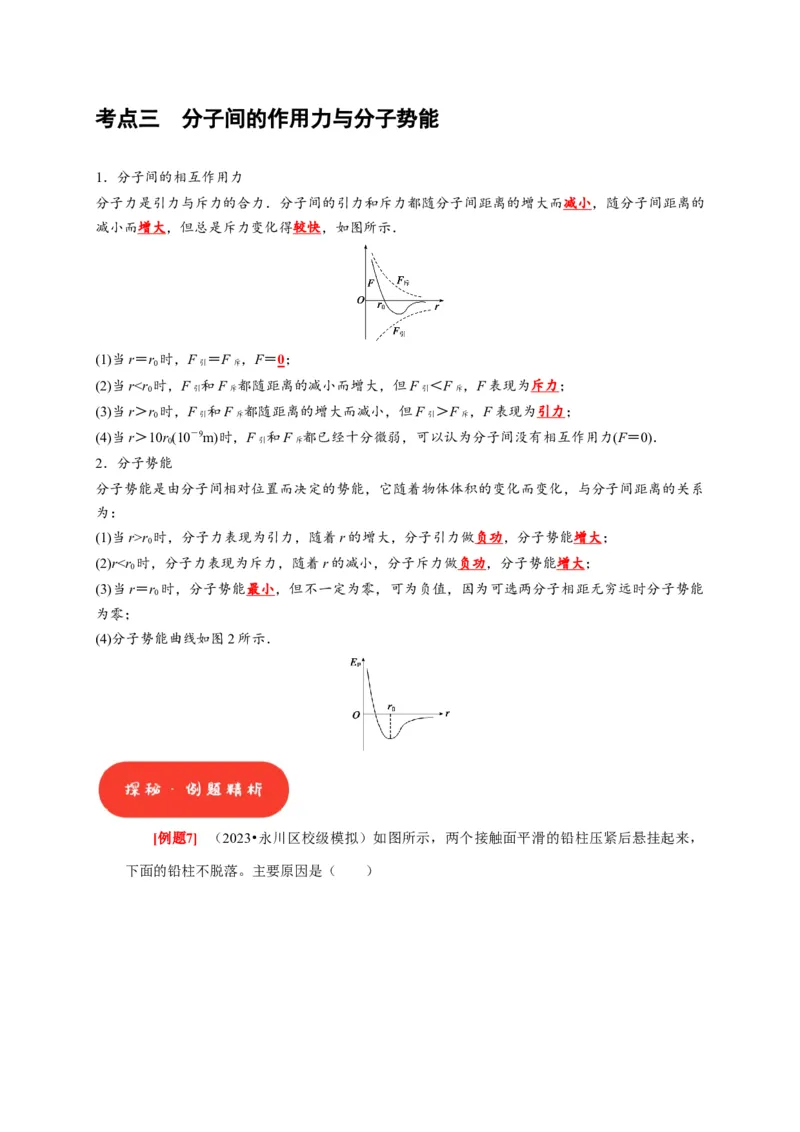 考点三　分子间的作用力与分子势能
1．分子间的相互作用力
分子力是引力与斥力的合力．分子间的引力和斥力都随分子间距离的增大而减小，随分子间距离的
减小而增大，但总是斥力变化得较快，如图所示．
F F斥
O r0 r
F引
(1)当r＝r0时，F引＝F斥，F＝0；
(2)当r<r0时，F引和F斥都随距离的减小而增大，但F引＜F斥，F表现为斥力；
(3)当r＞r0时，F引和F斥都随距离的增大而减小，但F引＞F斥，F表现为引力；
(4)当r＞10r0(10－9m)时，F引和F斥都已经十分微弱，可以认为分子间没有相互作用力(F＝0)．
2．分子势能
分子势能是由分子间相对位置而决定的势能，它随着物体体积的变化而变化，与分子间距离的关系
为：
(1)当r>r0时，分子力表现为引力，随着r的增大，分子引力做负功，分子势能增大；
(2)r<r0时，分子力表现为斥力，随着r的减小，分子斥力做负功，分子势能增大；
(3)当r＝r0时，分子势能最小，但不一定为零，可为负值，因为可选两分子相距无穷远时分子势能
为零；
(4)分子势能曲线如图2所示．
Ep
r0
O r
探秘·例题精析
[例题7] （2023•永川区校级模拟）如图所示，两个接触面平滑的铅柱压紧后悬挂起来，
下面的铅柱不脱落。主要原因是（　　）